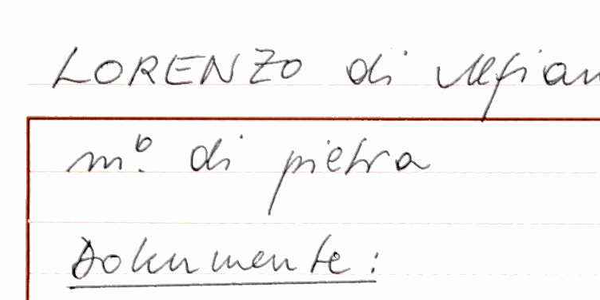 LORENZO di
m.º di pietra
Dokumente: